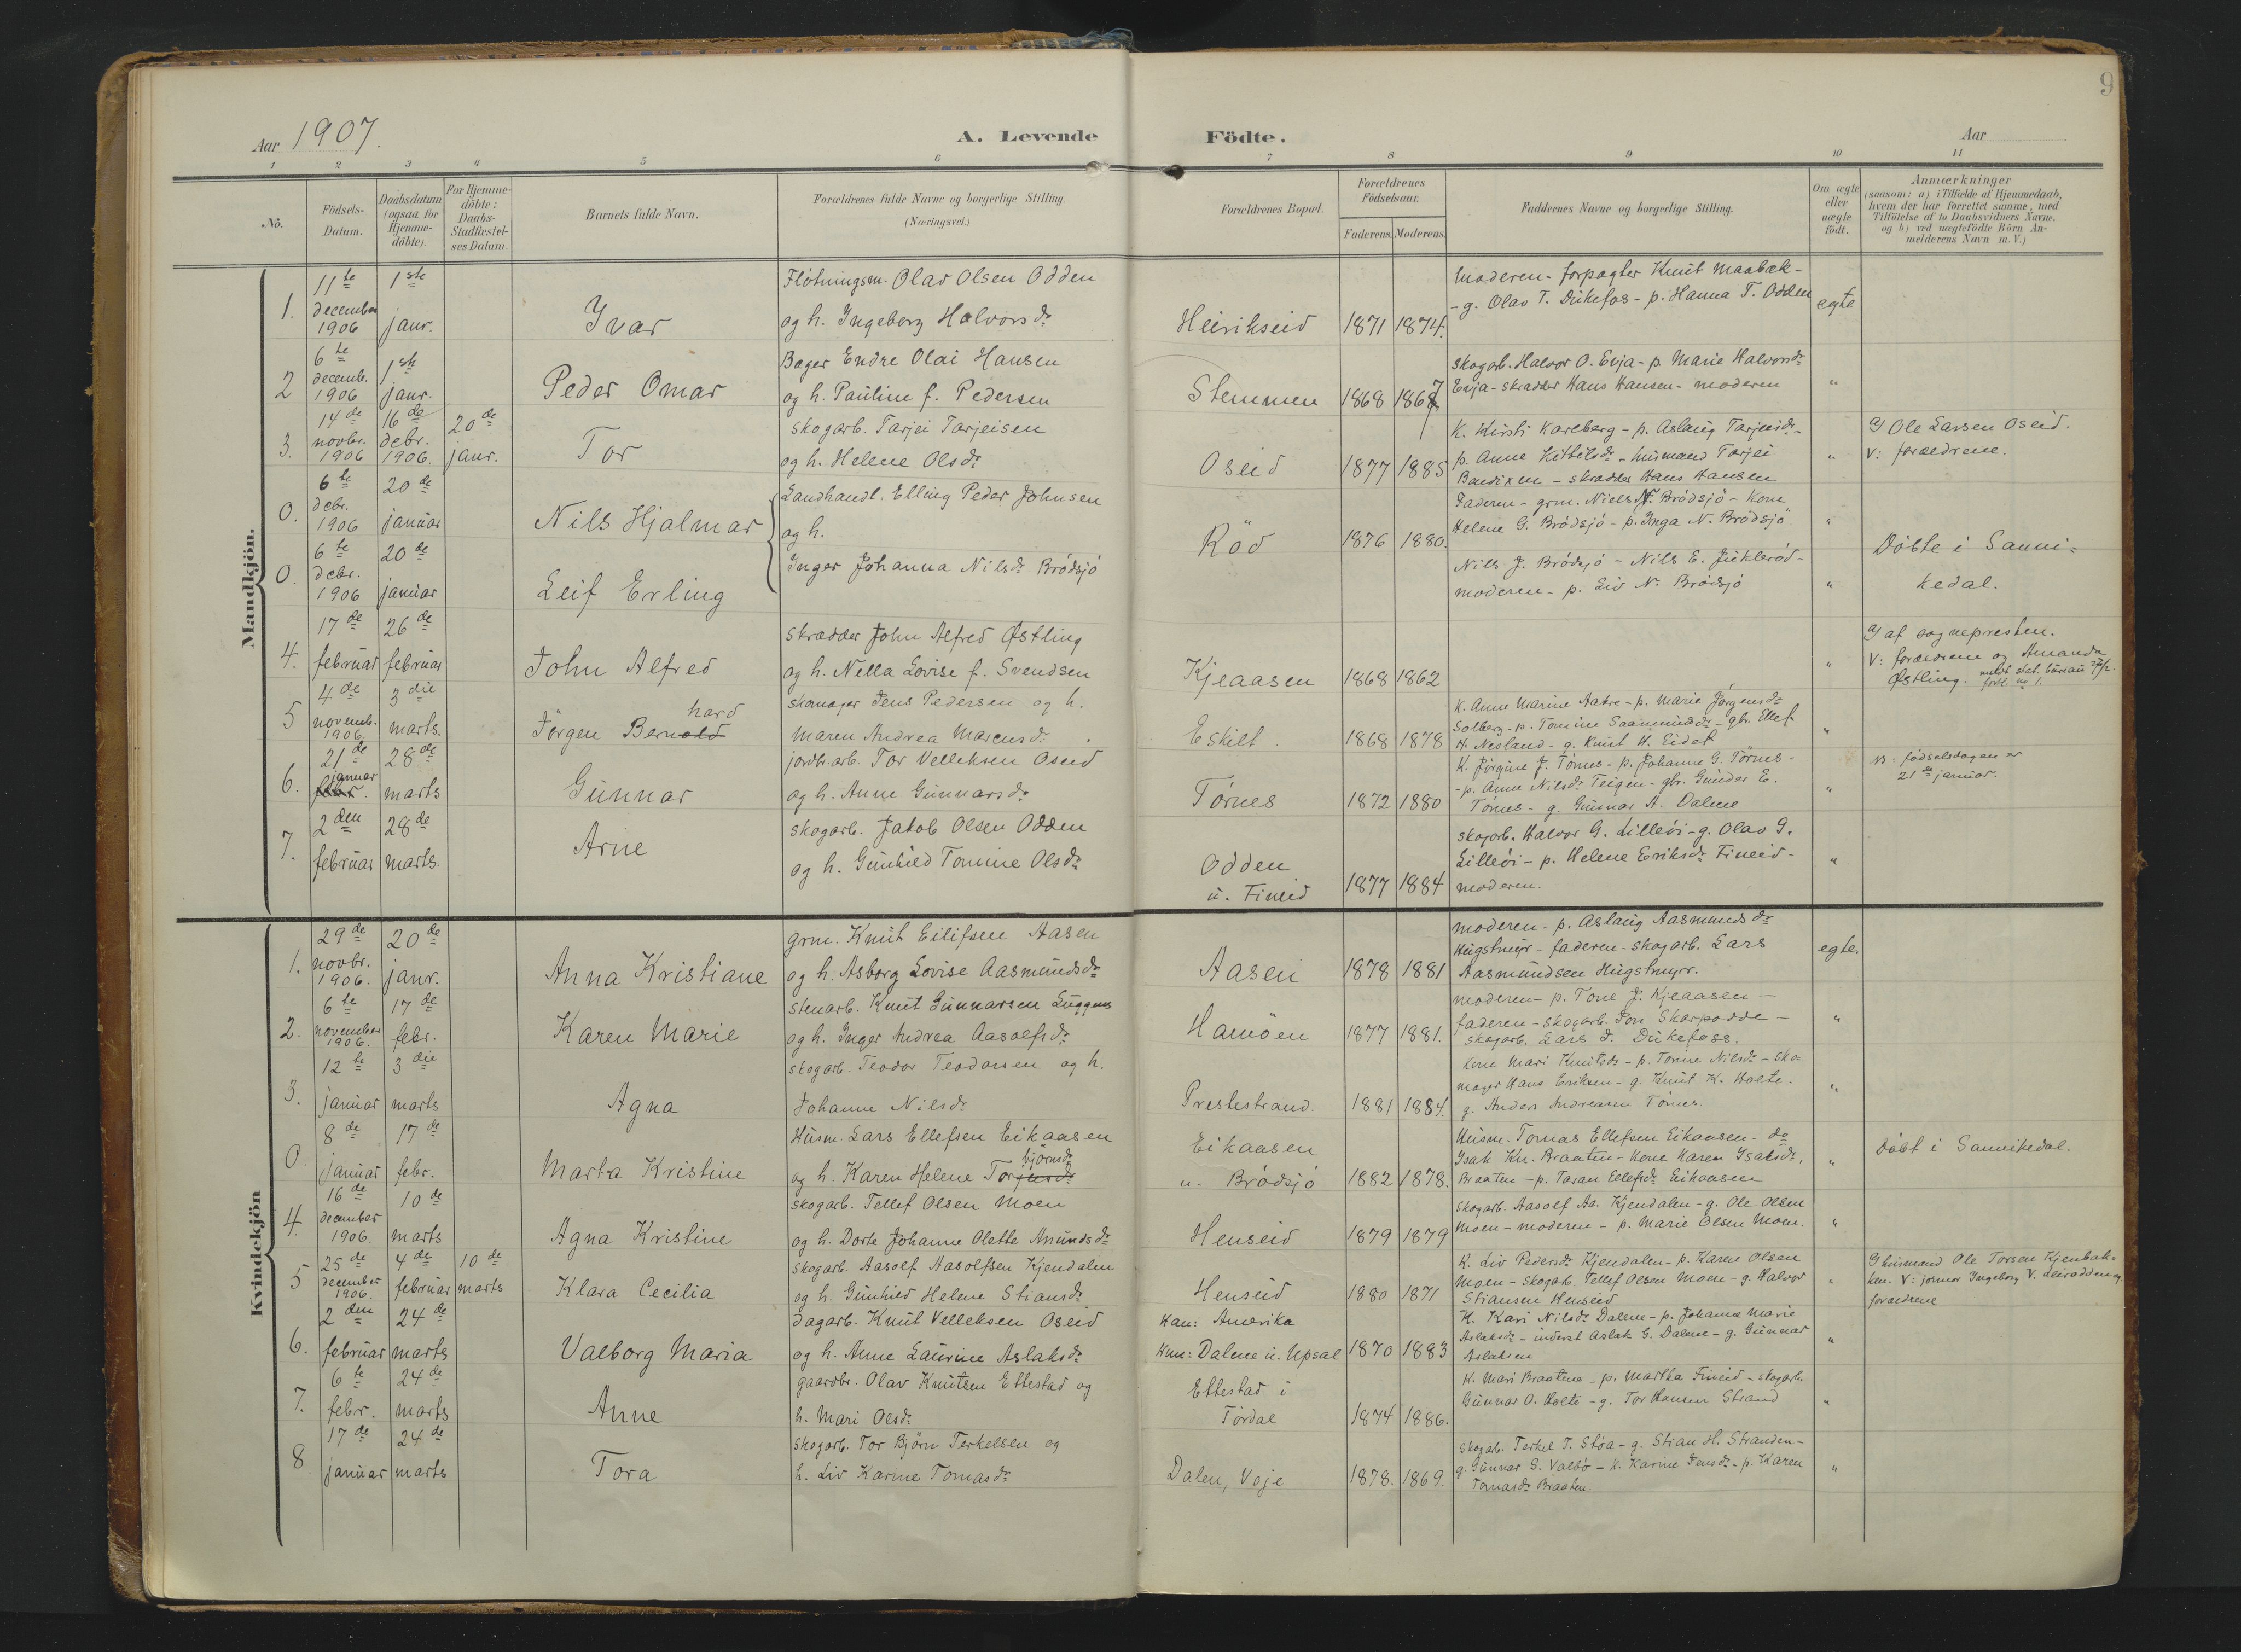 9
Aar 1907.
A. Levende
Födte.
Aar
1 2 3 4 5 6 7 8 9 10 11
No.
Födsels-
Datum.
Daabsdatum
(ogsaa for
Hjemme-
döbte).
For Hjemme-
döbte:
Daabs-
Stadfæstel-
ses Datum.
Barnets fulde Navn.
Forældrenes fulde Navne og borgerlige Stilling.
(Næringsvei.)
Forældrenes Bopæl.
Forældrenes
Födselsaar.
Faderens. Moderens.
Faddernes Navne og borgerlige Stilling.
Om ægte
eller
uægte
födt.
Anmærkninger
(saasom: a) i Tilfælde af Hjemmedaab,
hvem der har forrettet samme, med
Tilföielse af to Daabsvidners Navne.
og b) ved uægtefödte Börn An-
melderens Navn m. V.)
Mandkjön.
1.
11te
december
1906
1ste
janr.
Ivar
Flötningsm. Olav Olsen Odden
og h. Ingeborg Halvorsdr
Heirikseid
1871 1874.
moderen - forpagter Knut Maabæk -
- g. Olav T. Dukefos - p. Hanna T. Odden
egte
2
6te
decemb.
1906
1ste
janr.
Peder Omar
Bager Endre Olai Hansen
og h. Pauline f. Pedersen
Stemmen
1868 1867
skogarb. Halvor O. Evja - p. Marie Halvorsdr
Evja - skrædder Hans Hansen - moderen
"
3.
14de
novbr.
1906
16de
debr.
1906.
20de
janr.
Tor
skogarb. Tarjei Tarjeisen
og h. Helene Olsdr
Oseid
1877 1885
K. Kirsti Karlberg - p. Aslaug Tarjeisdr -
p. Anne Kittilsdr - husmand Tarjei
Bendixen - skrædder Hans Hansen
"
a/ Ole Larsen Oseid.
V: forældrene.
0.
6te
debr.
1906
20de
januar
Nils Hjalmar
Landhandl. Elling Peder Johnsen
og h.
Inger Johanna Nilsdr Brödsjö
Röd
1876 1880.
Faderen - grm. Niels N. Brödsjö - Kone
Helene G. Brödsjö - p. Inga N. Brödsjö
"
Döbte i Sanni-
kedal.
0.
6te
debr.
1906
20de
januar
Leif Erling
Nils J. Brödsjö - Nils E. Jukleröd -
moderen - p. Liv N. Brödsjö
"
4.
17de
februar
26de
februar
John Alfred
skrædder John Alfred Østling
og h. Nella Lovise f. Svendsen
Kjeaasen
1868 1862
"
a/ af sognepresten.
V: forældrene og Amanda
Østling.
5
4de
novemb.
1906.
3die
marts.
Jörgen Bernold
hard
skomager Jens Pedersen og h.
Maren Andrea Marensdr
Eskilt
1868 1878
K. Anne Marine Aabre - p. Marie Jörgensdr
Solberg - p. Tomine Saamundsdr - gbr. Ellef
H. Nesland - g. Knut H. Eidet
"
6.
21de
januar
febr.
28de
marts
Gunnar
jordbr.arb. Tor Velleksen Oseid
og h. Anne Gunnarsdr
Törnes
1872 1880
K. Jörgine J. Törnes - p. Johanne G. Törnes -
- p. Anne Nilsdr Teigen - gbr. Gunder E.
Törnes - g. Gunnar A. Dalene
"
NB: födselsdagen er
21de januar.
7.
2den
februar
28de
marts.
Arne
skogarb. Jakob Olsen Odden
og h. Gunhild Tomine Olsdr
Odden
u. Fineid
1877 1884
skogarb. Halvor G. Lilleöi - g. Olav G.
Lilleöi - p. Helene Eriksdr Fineid -
moderen.
"
Kvindekjön
1.
29de
novbr.
1906.
20de
janr.
Anna Kristiane
grm. Knut Eilifsen Aasen
og h. Asborg Lovise Aasmundsdr
Aasen
1878 1881
moderen - p. Aslaug Aasmundsdr
Hugstmyr - faderen - skogarb. Lars
Aasmundsen Hugstmyr.
egte.
2.
6te
november
1906.
17de
febr.
Karen Marie
stenarb. Knut Gunnarsen
og h. Inger Andrea Aasolfsdr
Hamöen
1877 1881.
moderen - p. Tone J. Kjeaasen -
faderen - skogarb. Jon Skarpodde -
skogarb. Lars J. Dukefoss.
"
3.
12te
januar
3die
marts
Agna
skogarb. Teodor Teodorsen og h.
Johanne Nilsdr
Prestestrand.
1881 1884.
kone Mari Knutsdr - p. Tonne Nilsdr - sko-
mager Hans Eriksen - g. Knut K. Holte.
g. Anders Andreasen Törnes.
"
0.
8de
januar
17de
febr.
Marta Kristine
Husm. Lars Ellefsen Eikaasen
björnsdr
og h. Karen Helene Torjensdr
Eikaasen
u. Brödsjö
1882 1878.
Husm. Tomas Ellefsen Eikaasen - do
Isak Kn. Braaten - Kone Karen Isaksdr,
Braaten - p. Taran Ellefsdr Eikaasen
"
Döbt i Sannikedal.
4.
16de
december
1906.
10de
marts
Agna Kristine
skogarb. Tellef Olsen Moen
og h. Dorte Johanne Olette Anundsdr
Henseid
1879 1879
skogarb. Aasolf Aa. Kjendalen - g. Ole Olsen
Moen - moderen - p. Marie Olsen Moen.
"
5
25de
december
1906.
4de
februar
10de
marts
Klara Cecilia
skogarb. Aasolf Aasolfsen Kjendalen
og h. Gunhild Helene Stiansdr
Henseid
1880 1871
K. Liv Pedersdr Kjendalen - p. Karen Olsen
Moen - skogarb. Tellef Olsen Moen - g. Halvor
Stiansen Henseid
"
a/ husmand Ole Torsen Kjenbak-
ken. V: jormor Ingeborg V. Leirodden og
forældrene
6.
2den
februar
24de
marts
Valborg Maria
Dagarb. Knut Velleksen Oseid
og h. Anne Laurine Aslaksdr
Han: Amerika
Hun: Dalene u. Upsal
1870 1883
K. Kari Nilsdr Dalene - p. Johanne Marie
Aslaksdr - inderst Aslak G. Dalene - g. Gunnar
Aslaksen
"
7.
6te
febr.
24de
marts
Anne
gaardbr. Olav Knutsen Ettestad og
h. Mari Olsdr
Ettestad i
Tördal
1874 1886.
K. Mari Braatene - p. Martha Fineid - skogarb.
Gunnar O. Holte - g. Tor Hansen Strand
"
8
17de
januar
24de
marts
Tora
skogarb. Tor Björn Terkelsen og
h. Liv Karine Tomasdr
Dalen, Voje
1878. 1869.
skogarb. Terkel T. Stöa - g. Stian H. Stranden -
g. Gunnar S. Valbö - K. Karine Jensdr - p. Karen
Tomasdr Braaten.
"